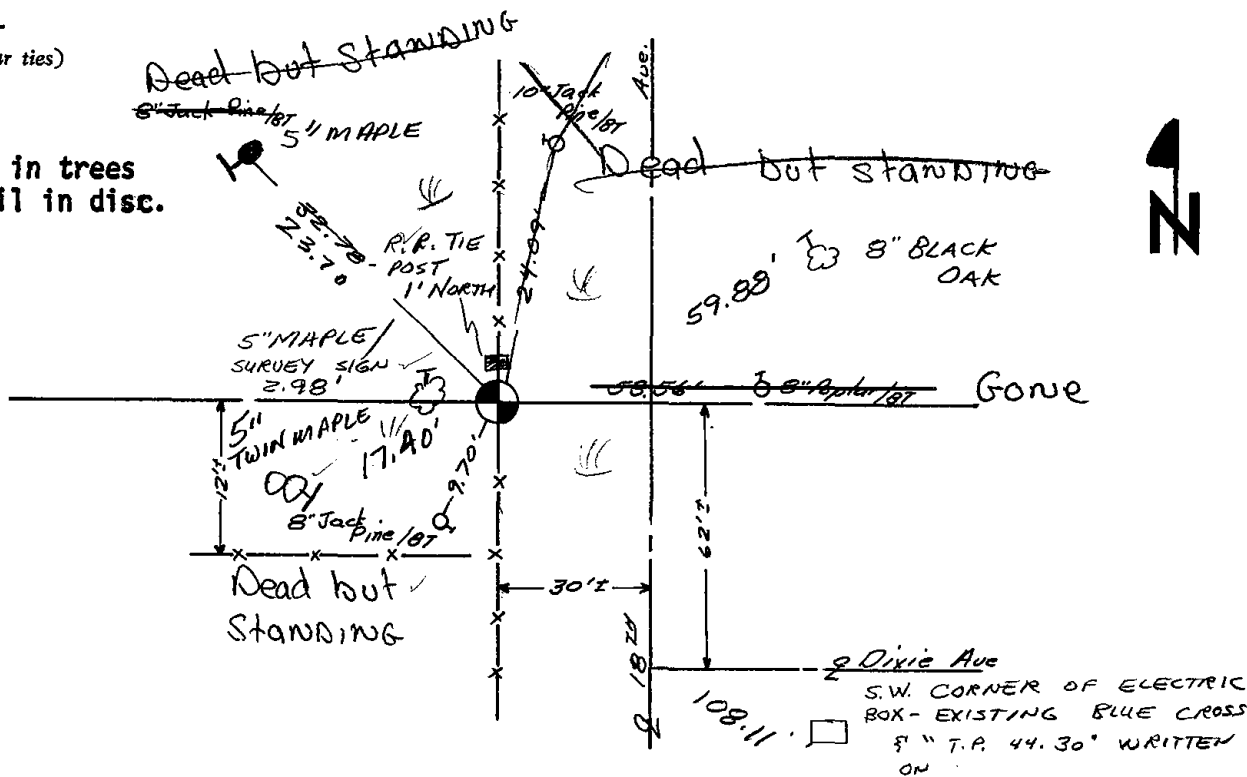 r ties)
Dead but STANDING
8" Jack Pine/BT
5" MAPLE
in trees
il in disc.
10" Jack
Pine/BT
Ave.
Dead but STANDING
N
32.78
23.70
R.R. TIE
POST
1' NORTH
24.09'
59.88'
8" BLACK
OAK
5" MAPLE/
SURVEY SIGN
2.98'
58.56'
8" Poplar/BT
Gone
5"
TWIN MAPLE
17.40'
9.70'
12'±
8" Jack
Pine/BT
62'±
Dead but
STANDING
30'±
18th
Dixie Ave
S.W. CORNER OF ELECTRIC
BOX - EXISTING BLUE CROSS
& " T.P. 44.30" WRITTEN
ON
108.11